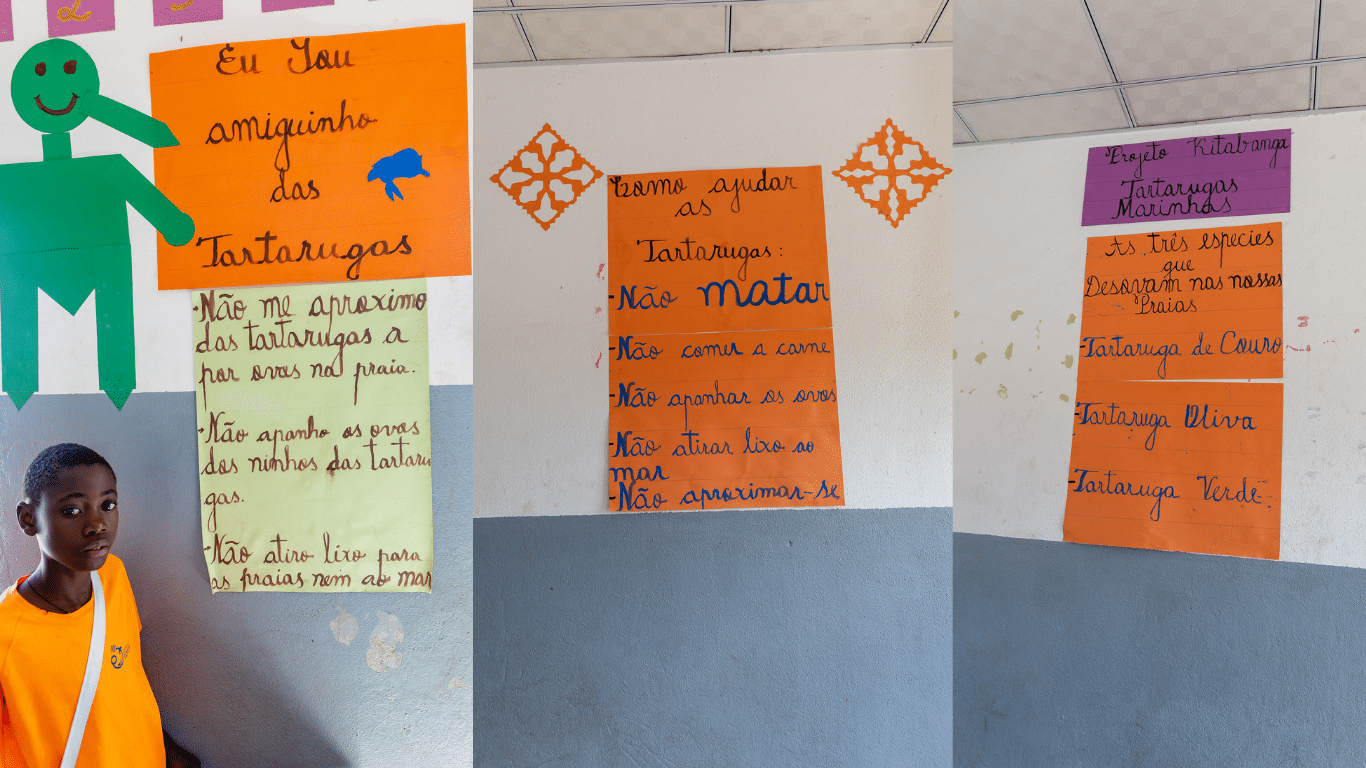 2 3
Eu Sou
amiguinho
das
Tartarugas
-Não me aproximo
das tartarugas a
por ovos na praia.
-Não apanho os ovos
dos ninhos das tartaru
gas.
-Não atiro lixo para
as praias nem ao mar
Como ajudar
as
Tartarugas:
-Não matar
-Não comer a carne
-Não apanhar os ovos
-Não atirar lixo ao
mar
-Não aproximar-se
Projeto Kitabanga
Tartarugas
Marinhas
As três especies
que
Desovam nas nossas
Praias
-Tartaruga de Couro
-Tartaruga Oliva
-Tartaruga Verde